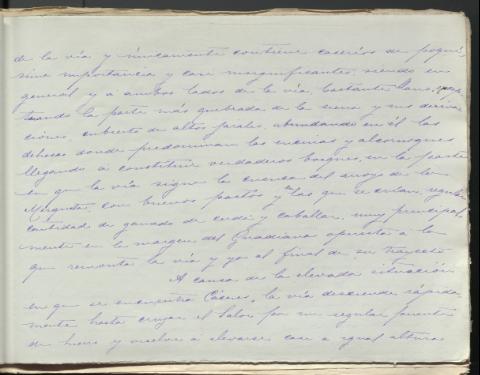 de la vía y únicamente contiene caseríos de poquí-
sima importancia y casi insignificantes, siendo en
general y a ambos lados de la vía, bastante llano, excep-
tuando la parte más quebrada de la sierra y sus deriva-
ciones, cubierto de altos jarales, abundando en él las
dehesas donde predominan las encinas y alcornoques
llegando á constituir verdaderos bosques, en la parte
en que la vía sigue la cuenca del arroyo de la
con buenos pastos y en las que se crían regular
cantidad de ganado de cerda y caballar, muy principal-
mente en la margen del Guadiana opuesta a la
que remonta la vía y ya al final de su trayecto.
A causa de la elevada situación
en que se encuentra Cáceres, la vía desciende rápida-
mente hasta cruzar el Salor por un regular puente
de hierro y vuelve á elevarse casi a igual altura